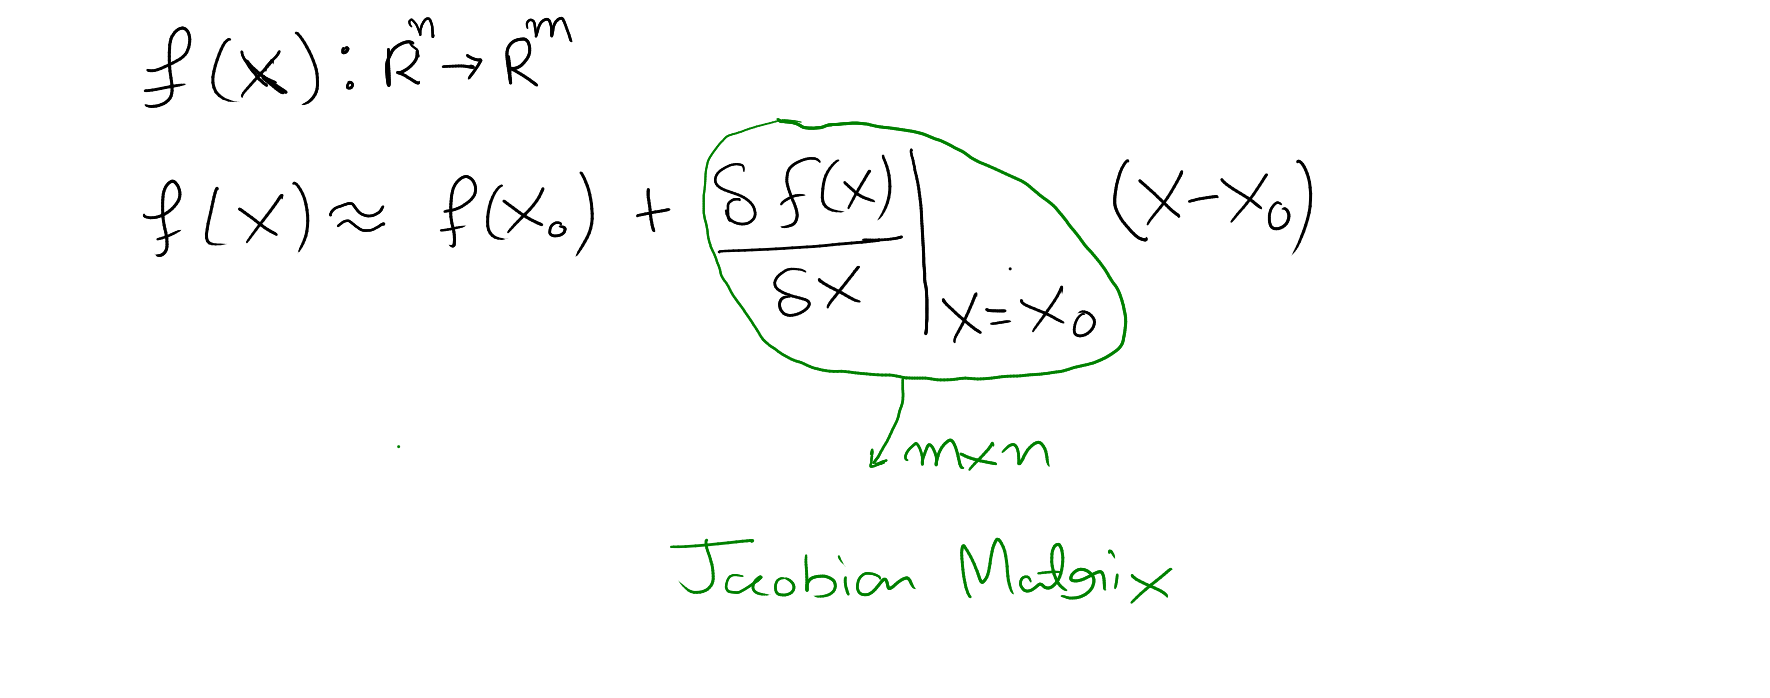 f(x) : Rⁿ → Rᵐ
f(x) ≈ f(x₀) + δf(x)/δx |ₓ₌ₓ₀ (x-x₀)
m×n
Jacobian Matrix